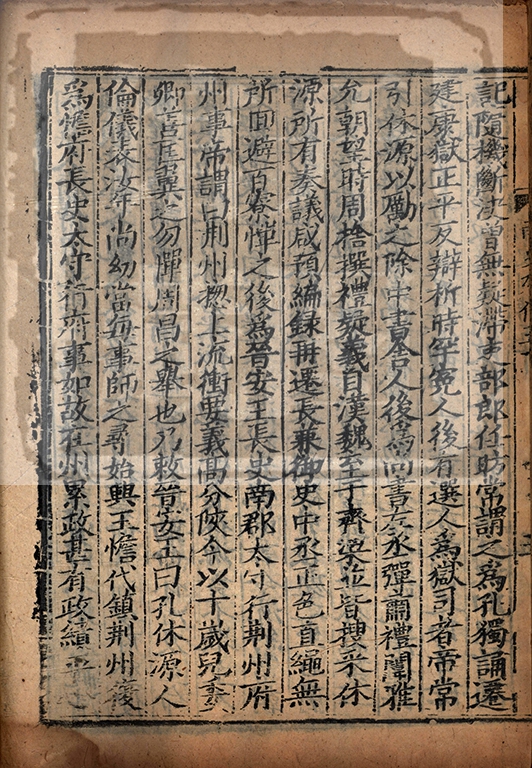 記隨機斷決曽無疑滯吏部郎任昉常謂之為孔獨誦遷
建康獄正平反辯析時罕寃人後有選人為獄司者帝常
引休源以勵之除中書舍人後為尚書左丞彈肅禮闈雅
允朝望時周捨撰禮疑義自漢魏至于齊梁並皆搜采休
源所有奏議咸預編録再遷長兼御史中丞正色直繩無
所回避百寮憚之後為晉安王長史南郡太守行荆州府
州事帝謂曰荆州揔上流衝要義高分陝今以十歳兒委
卿善匡翼之勿憚周昌之舉也乃敕晉安王曰孔休源人
倫儀表汝年尚幼當每事師之尋始興王憺代鎮荆州復
為憺府長史太守行府事如故在州累政甚有政績平